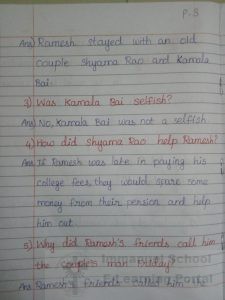 P.8
Ans) Ramesh stayed with an old
couple Shyama Rao and Kamala
Bai.
3) Was Kamala Bai selfish?
Ans) No, Kamala Bai was not a selfish
4) How did Shyama Rao help Ramesh?
Ans) If Ramesh was late in paying his
college fees, they would spare some
money from their pension and help
him out.
5) Why did Ramesh's friends call him
the couple's man Friday?
Ans) Ramesh's friends call him